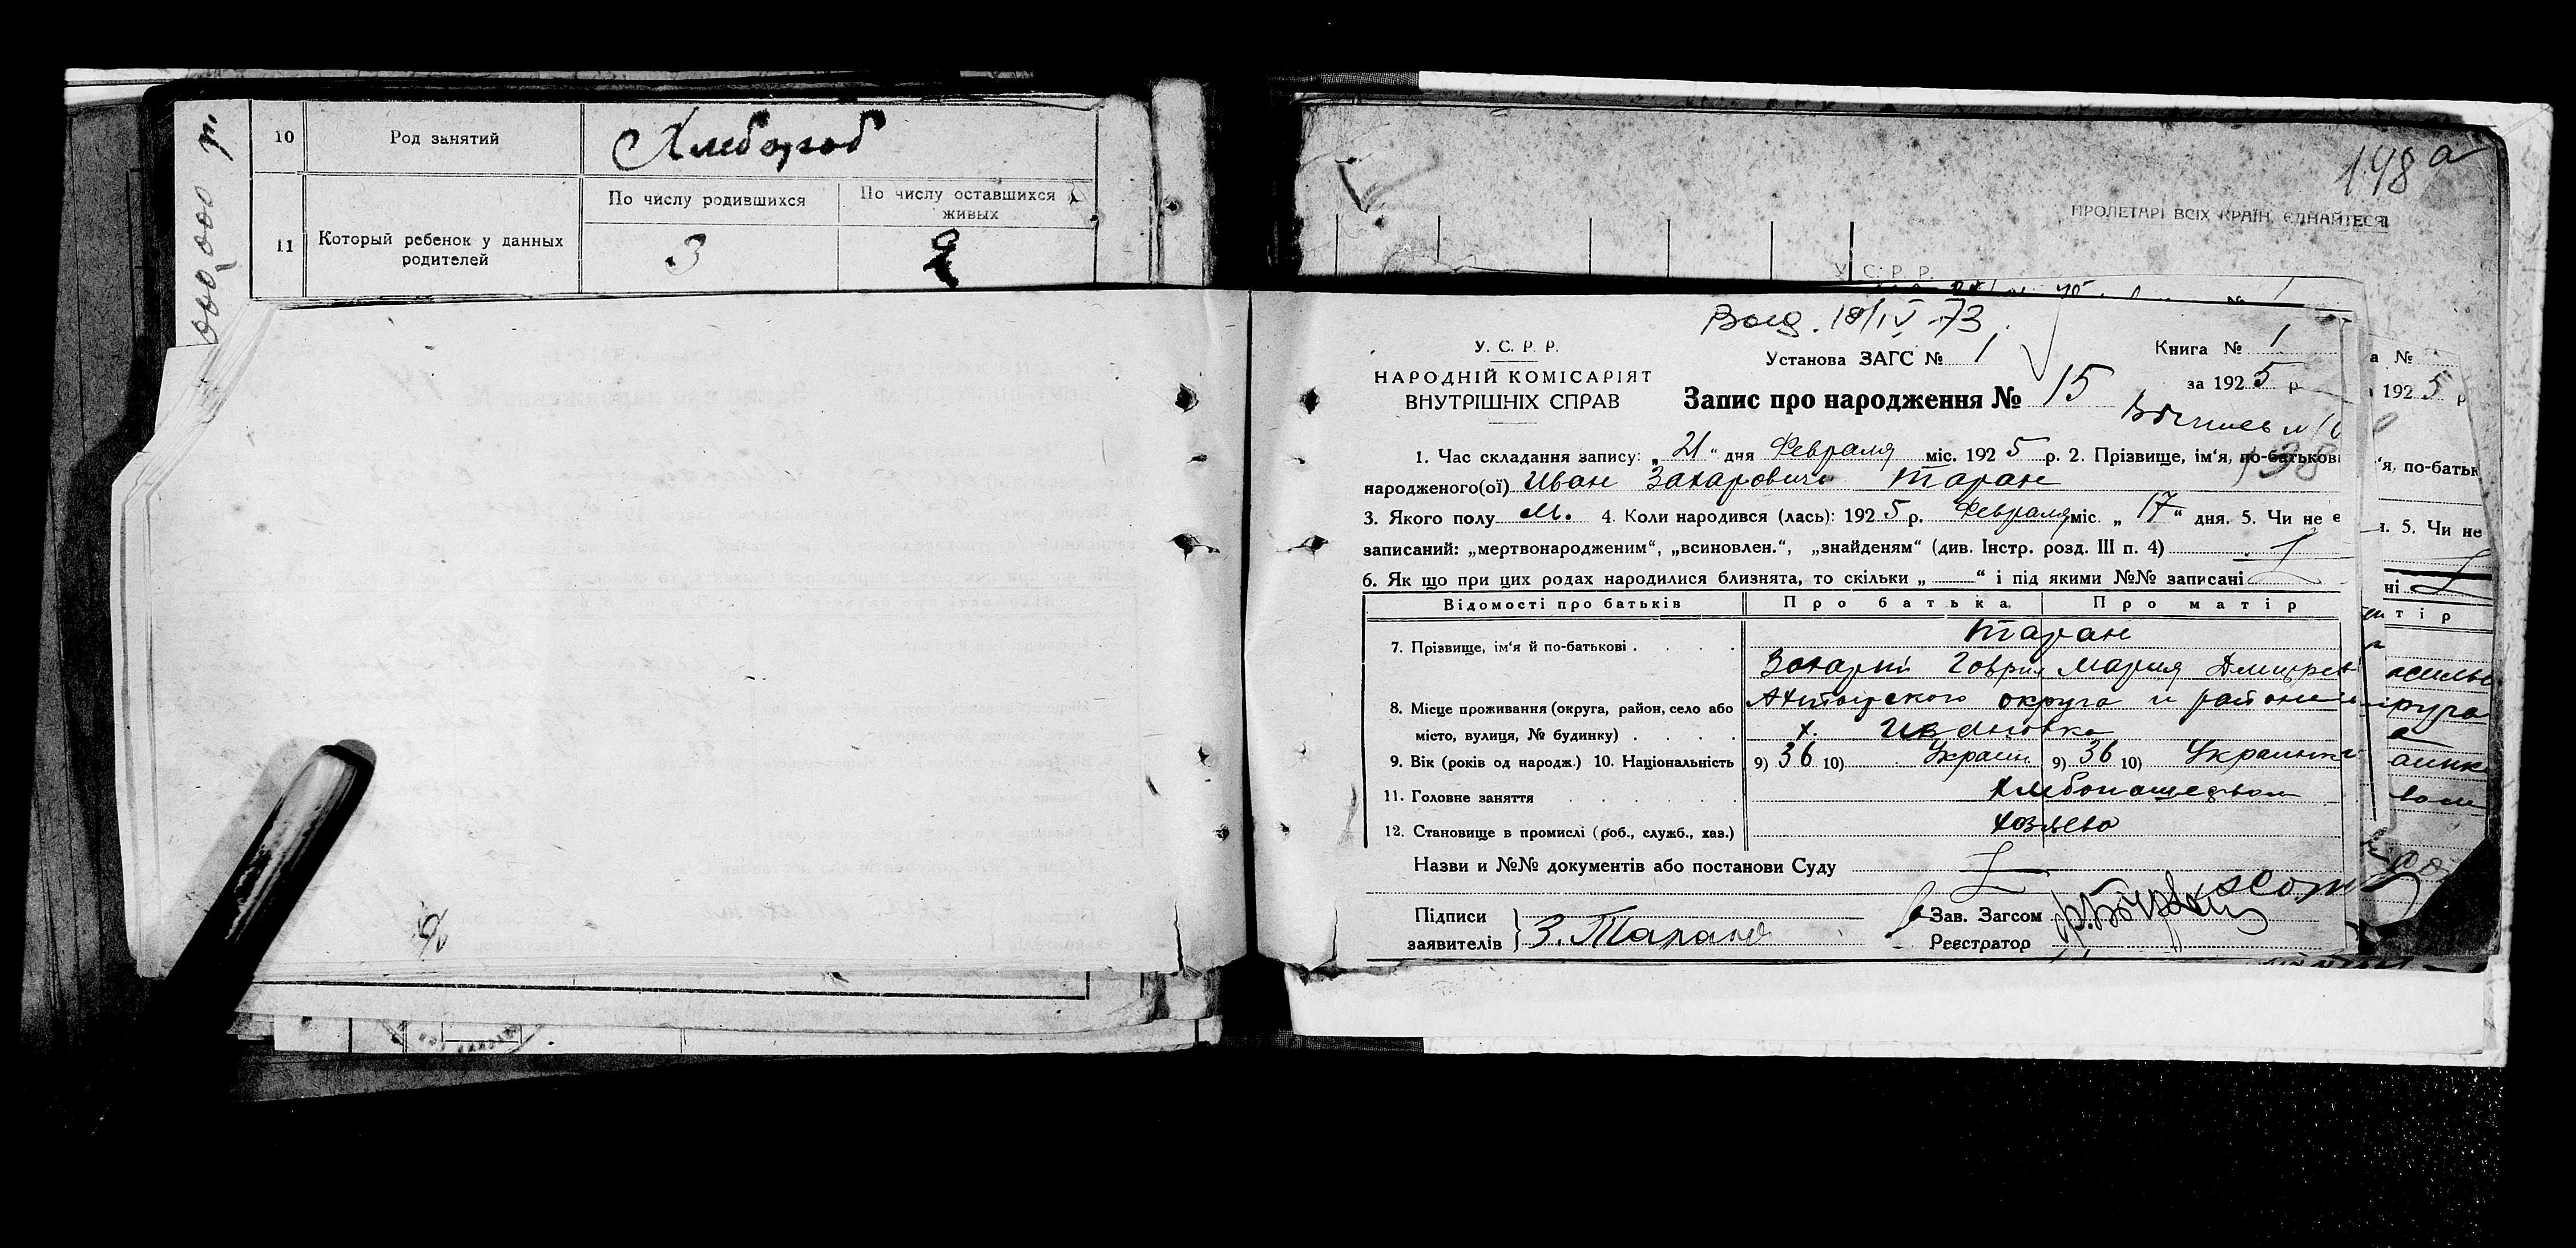 000,000 р.
10 Род занятий Хлебороб
По числу родившихся По числу оставшихся живых
11 Который ребенок у данных родителей 3 2
198 а
ПРОЛЕТАРІ ВСІХ КРАЇН, ЄДНАЙТЕСЯ
У. С. Р. Р.
18/IV-73
У. С. Р. Р.
НАРОДНІЙ КОМІСАРІЯТ
ВНУТРІШНІХ СПРАВ
Установа ЗАГС № 1
Книга № 1
за 1925 р
Запис про народження № 15
1. Час складання запису: „21“ дня Февраля міс. 1925 р. 2. Прізвище, ім‘я, по-батькові
народженого(ої) Иван Захарович Таран
3. Якого полу М. 4. Коли народився (лась): 1925 р. Февраля міс. „17“ дня. 5. Чи не є
записаний: „мертвонародженим“, „всиновлен.“, „знайденям“ (див. Інстр. розд. III п. 4)
6. Як що при цих родах народилися близнята, то скільки „ “ і під якими №№ записані
Відомості про батьків Про батька Про матір
7. Прізвище, ім‘я й по-батькові . . . . Таран
Захарий Гаврил Мария Дмитрев
8. Місце проживання (округа, район, село або Ахтырского округа и района
місто, вулиця, № будинку) . . . . х. Ивановка
9. Вік (років од народж.) 10. Національність 9) 36 10) Украин. 9) 36 10) Украинка
11. Головне заняття . . . . . хлебопашеством
12. Становище в промислі (роб., служб., хаз.) хозяева
Назви и №№ документів або постанови Суду
Підписи
заявителів З. Таран
Зав. Загсом
Реєстратор
а №
1925 р
‘я, по-батьк
5. Чи не
ні
т і р